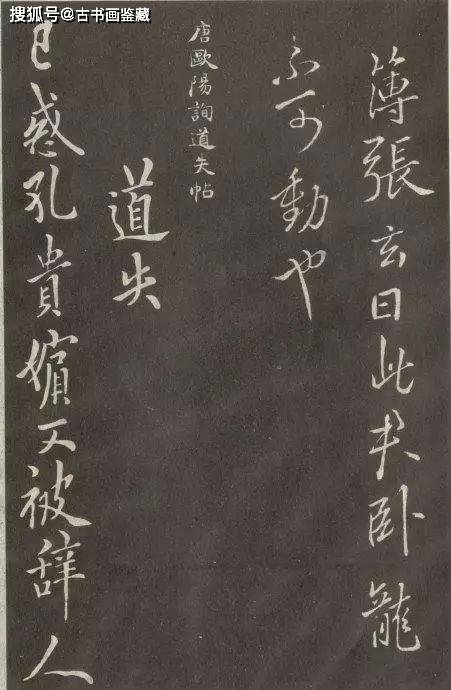 搜狐号@古书画鉴藏
簿張玄曰此卧龍
不可動也
唐歐陽詢道失帖
道失
已惑孔貴嬪又被辞人